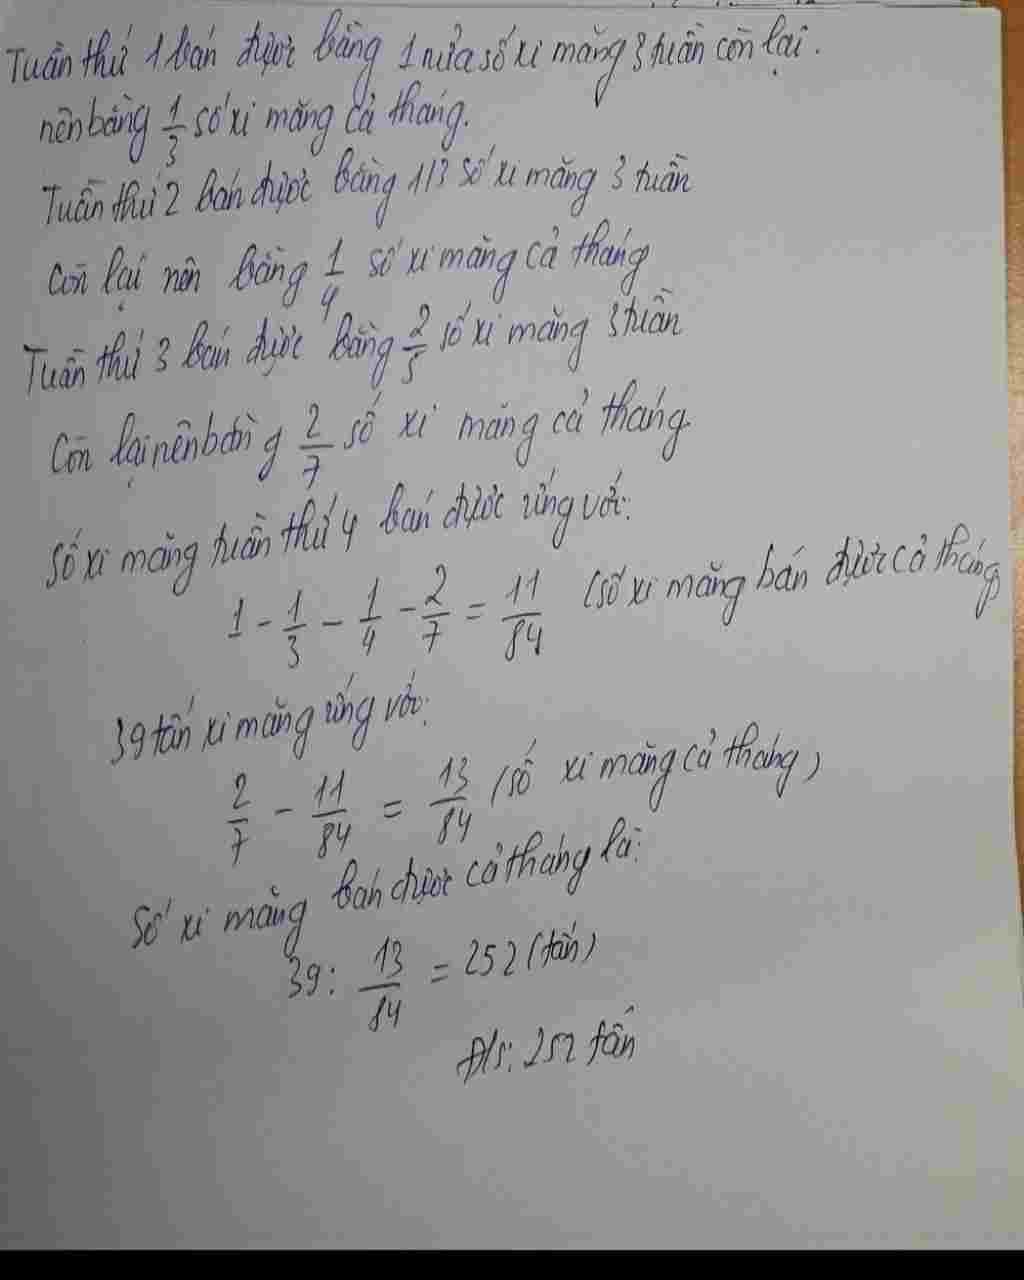 Tuần thứ 1 bán được bằng 1 nửa số xi măng 3 tuần còn lại.
nên bằng 1/3 số xi măng cả tháng.
Tuần thứ 2 bán được bằng 1/3 số xi măng 3 tuần
còn lại nên bằng 1/4 số xi măng cả tháng
Tuần thứ 3 bán được bằng 2/5 số xi măng 3 tuần
còn lại nên bằng 2/7 số xi măng cả tháng
số xi măng tuần thứ 4 bán được ứng với:
1 - 1/3 - 1/4 - 2/7 = 11/84 (số xi măng bán được cả tháng)
39 tấn xi măng ứng với:
2/7 - 11/84 = 13/84 (số xi măng cả tháng)
Số xi măng bán được cả tháng là:
39 : 13/84 = 252 (tấn)
Đ/s: 252 tấn